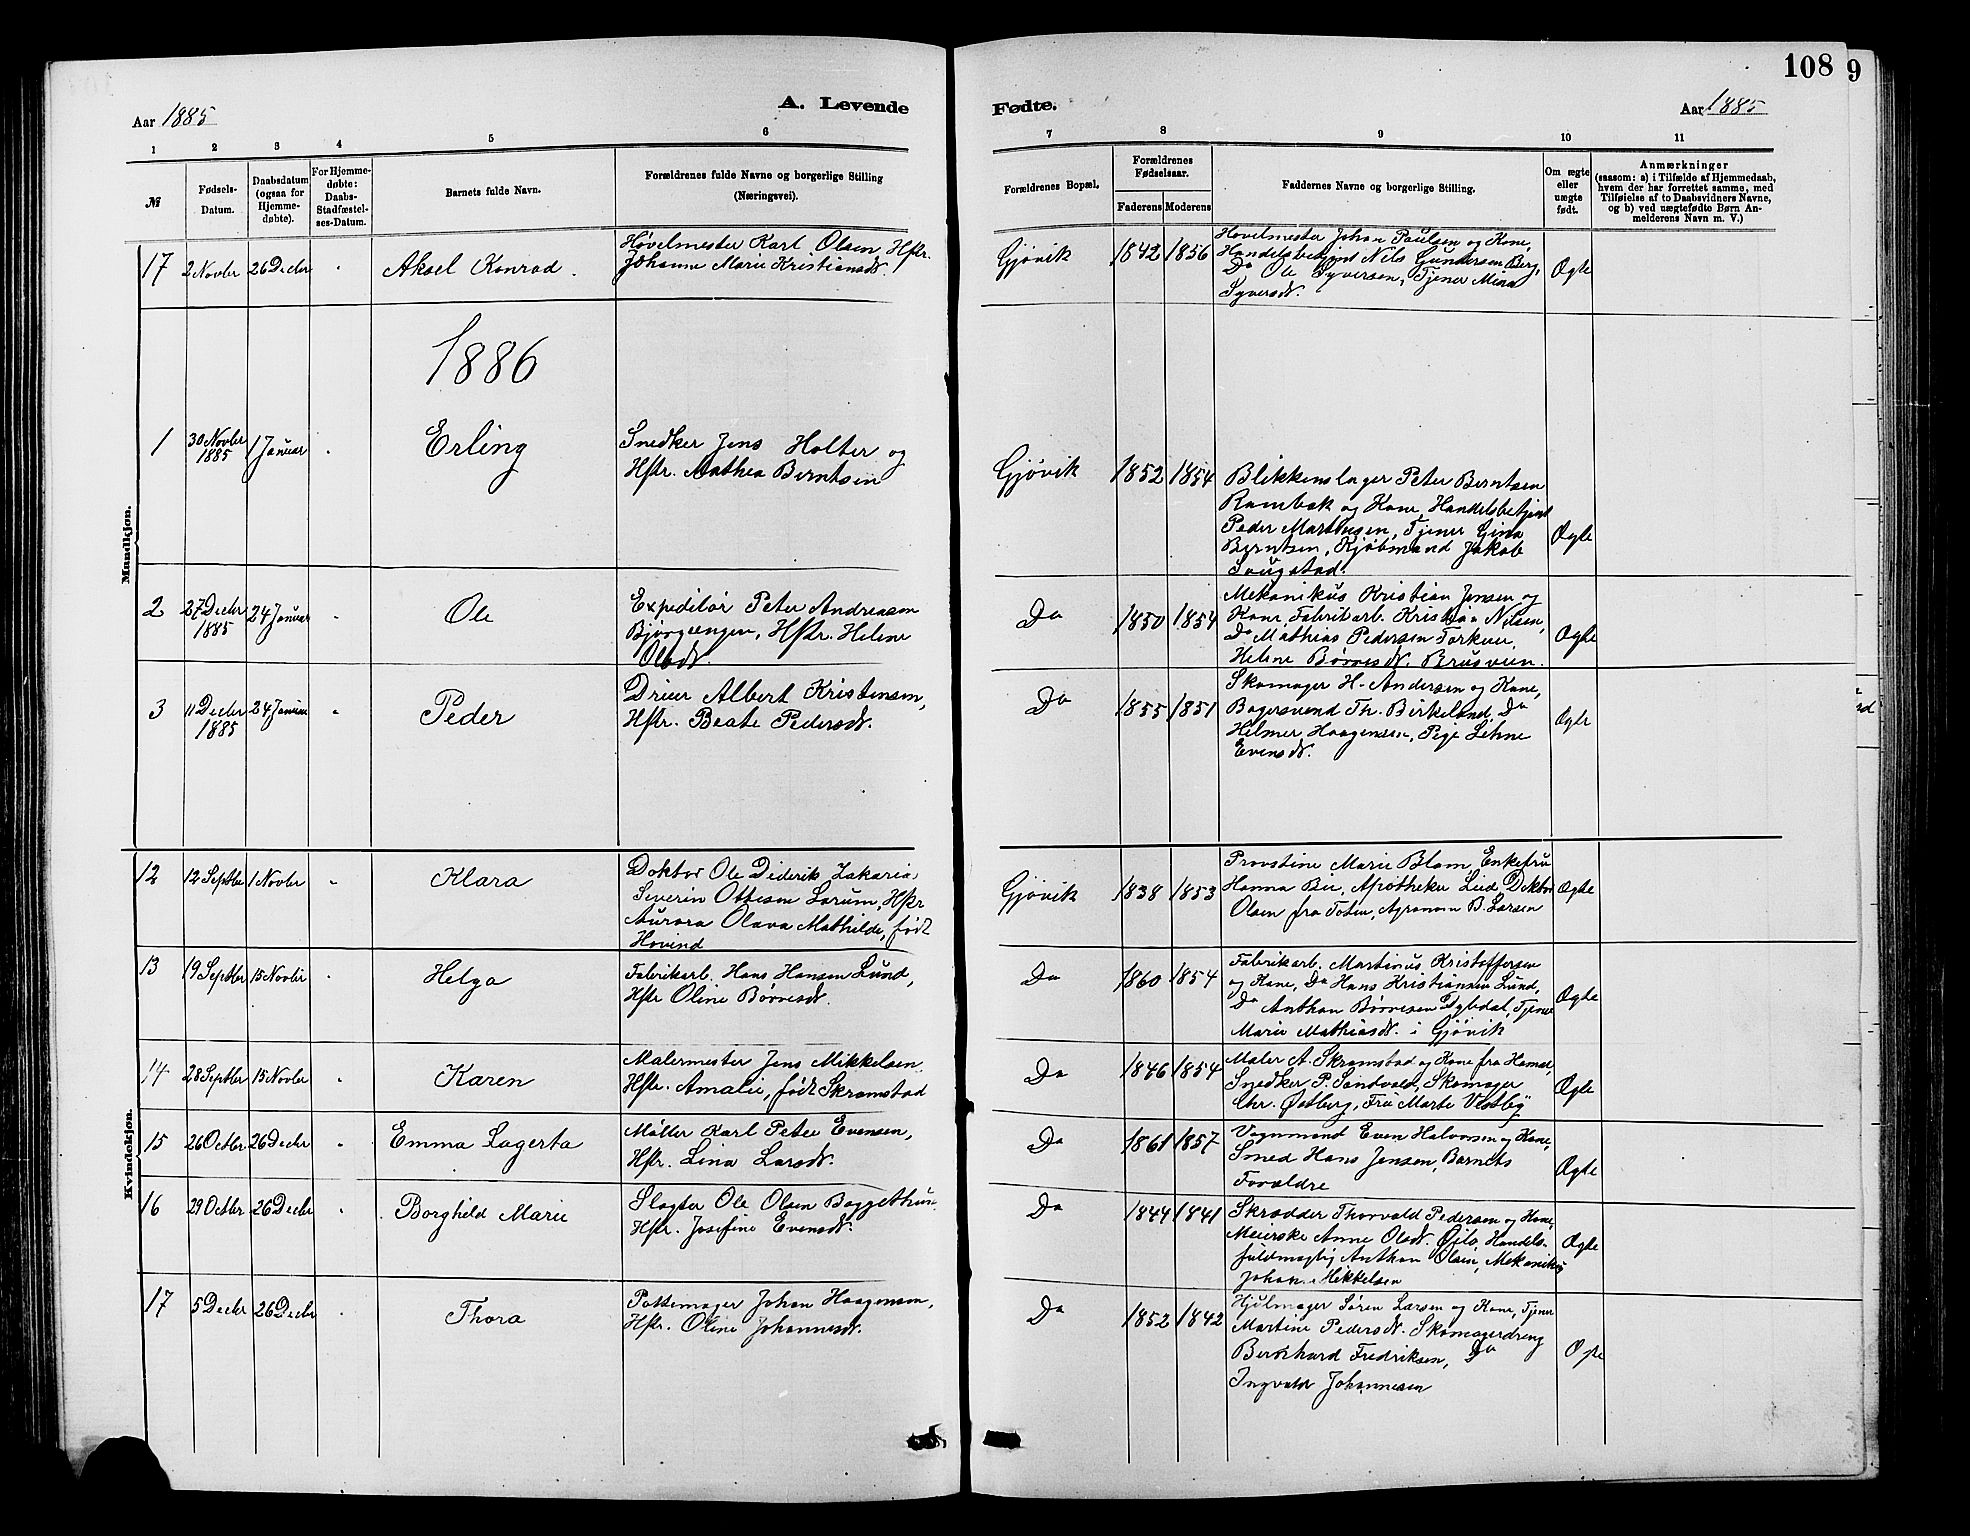 108
9
Aar 1885
A. Levende
Fødte.
Aar 1885
1
2
3
4
5
6
7
8
9
10
11
№
Fødsels-
Datum.
Daabsdatum
(ogsaa for
Hjemme-
døbte).
For Hjemme-
døbte:
Daabs-
Stadfæstel-
ses-Datum.
Barnets fulde Navn.
Forældrenes fulde Navne og borgerlige Stilling
(Næringsvei).
Forældrenes Bopæl.
Forældrenes
Fødselsaar.
Faderens
Moderens
Faddernes Navne og borgerlige Stilling.
Om ægte
eller
uægte
født.
Anmærkninger
(saasom: a) i Tilfælde af Hjemmedaab,
hvem der har forrettet samme, med
Tilføielse af to Daabsvidners Navne,
og b) ved uægtefødte Børn An-
melderens Navn m. V.)
Mandkjøn.
17
2 Novbr
26 Decbr
"
Aksel Konrad.
Høvelmester Karl Olsen, Hstr.
Johanne Marie Kristiansdt.
Gjøvik
1842
1856
Høvelmester Johan Paulsen og Kone,
Handelsbetjent Nils Gundersen Berg,
Do Ole Syversen, Tjener Mina
Syversdt.
Ægte
1886
1
30 Novbr
1885
1 Januar
"
Erling
Snedker Jens Holter og
Hstr. Mathea Berntsen
Gjøvik
1852
1854
Blikkenslager Peter Berntsen
Rambæk og Kone, Handelsbetjent
Peder Martinsen, Tjener Gina
Berntsen, Kjøbmand Jakob
Saugstad.
Ægte
2
27 Decbr
1885
24 Januar
"
Ole
Expeditør Peter Andreasen
Bjørgeengen, Hstr. Helene
Olsdt.
Do
1850
1854
Mekanikus Kristian Jensen og
Kone, Fabrikarb. Kristian Nilsen,
Do Mathias Pedersen
Helene Børresdt. Brusveen.
Ægte
3
11 Decbr
1885
24 Januar
"
Peder
Dreier Albert Kristensen,
Hstr. Beate Pedersdt.
Do
1855
1851
Skomager H. Andersen og Kone,
Bagersvend Th. Birkeland, Do
Helmer Haagensen, Pige Lehne
Evensdt.
Ægte
Kvindekjøn.
12
12 Septbr
1 Novbr
"
Klara
Doktor Ole Diderik Zakarias
Severin Ottesen Larum, Hstr
Aurora Olava Mathilde, født
Hovind
Gjøvik
1838
1853
Provstine Marie Blom, Enkefru
Hanna Bie, Apotheker Lind, Doktor
Olsen fra Toten, Agronom B. Larsen
Ægte
13
19 Septbr
15 Novbr
"
Helga
Fabrikarb. Hans Hansen Lund,
Hstr Oline Børresdt.
Do
1860
1854
Fabrikarb. Martinus Kristoffersen
og Kone, Do Hans Kristiansen Lund,
Do Anthon Børresen Dybdal, Tjener
Marie Mathiasdt. i Gjøvik
Ægte
14
28 Septbr
15 Novbr
"
Karen
Malermester Jens Mikkelsen
Hstr. Amalie, født Skramstad
Do
1846
1854
Maler A. Skramstad og Kone fra Hamar,
Snedker P. Sandvold, Skomager
Chr. Østberg, Fru Marte Vestby
Ægte
15
26 Octbr
26 Decbr
"
Emma Lagerta
Møller Karl Peter Evensen,
Hstr. Lina Larsdt.
Do
1861
1857
Vognmand Even Halvorsen og Kone,
Smed Hans Jensen, Barnets
Forældre
Ægte
16
29 Octbr
26 Decbr
"
Borghild Marie
Slagter Ole Olsen Baggethun
Hstr. Josefine Evensdt.
Do
1844
1841
Skrædder Thorvald Pedersen og Kone,
Meierske Anne Olsdt. Handels-
fuldmægtig Anthon Olsen, Mekanikus
Johan Mikkelsen
Ægte
17
5 Decbr
26 Decbr
"
Thora
Pottemager Johan Haagensen,
Hstr. Oline Johannesdt.
Do
1852
1842
Hjulmager Søren Larsen og Kone, Tjener
Martine Pedersdt. Skomagerdreng
Bernhard Fredriksen, Do
Ingvald Johannesen
Ægte